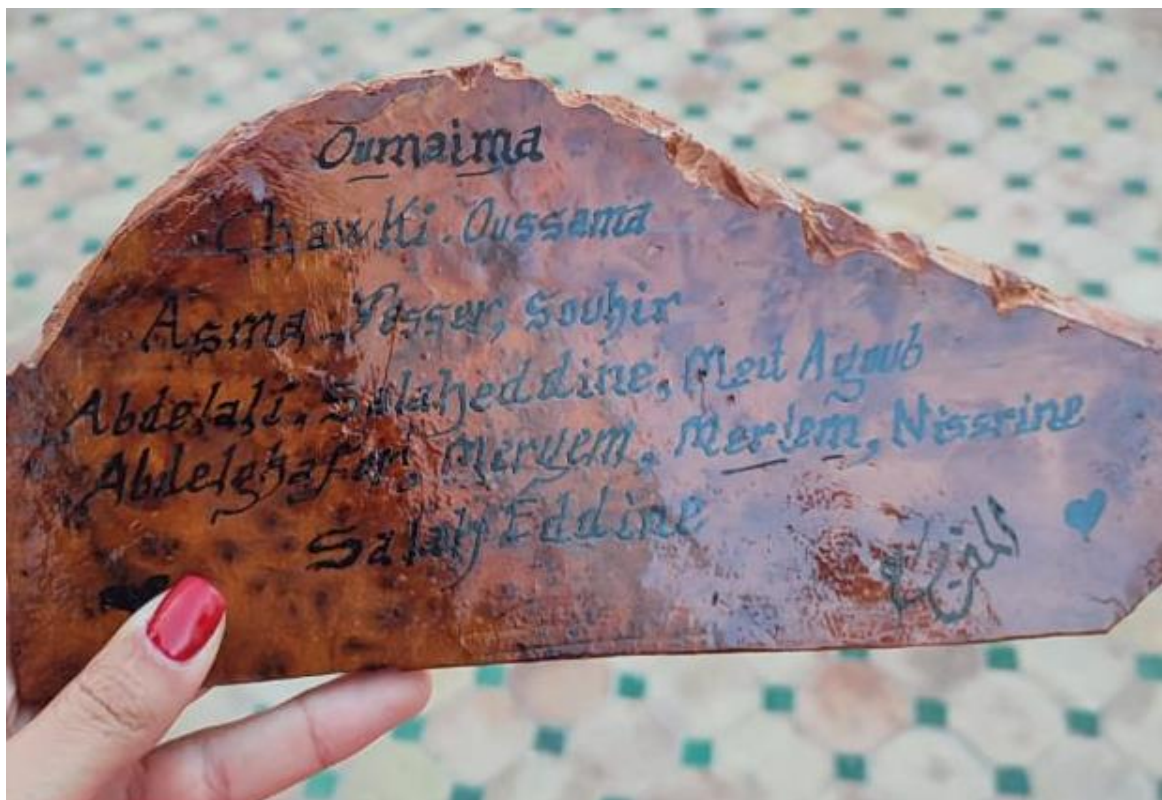 Oumaima
Chawki. Oussama
Asma _ Yasser, Souhir
Abdelali. Salaheddine, Med Ayoub
Abdelghafar, Meryem, Meriem, Nissrine
Salah Eddine